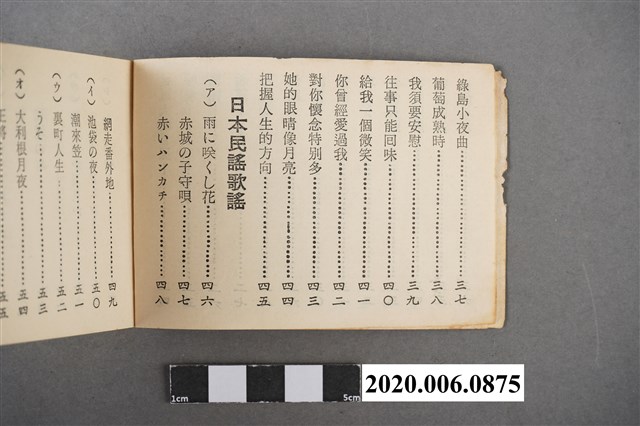 綠島小夜曲 三七
葡萄成熟時 三八
我須要安慰 三九
往事只能回味 四〇
給我一個微笑 四一
你曾經愛過我 四二
對你懷念特別多 四三
她的眼睛像月亮 四四
把握人生的方向 四五
日本民謠歌謠
(ア) 雨に咲くし花 四六
赤城の子守唄 四七
赤いハンカチ 四八
網走番外地 四九
(イ) 池袋の夜 五〇
潮來笠 五一
(ウ) 裏町人生 五二
うそ 五三
(オ) 大利根月夜 五四
五五
1cm
5cm
2020.006.0875